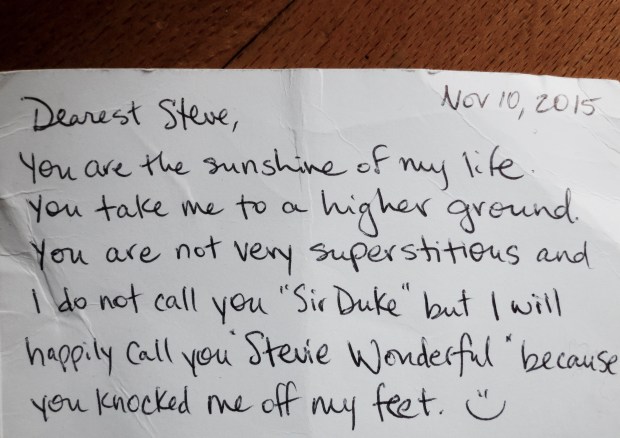 Nov 10, 2015
Dearest Steve,
You are the sunshine of my life.
You take me to a higher ground.
You are not very superstitious and
I do not call you "Sir Duke" but I will
happily call you "Stevie Wonderful" because
you knocked me off my feet. :)